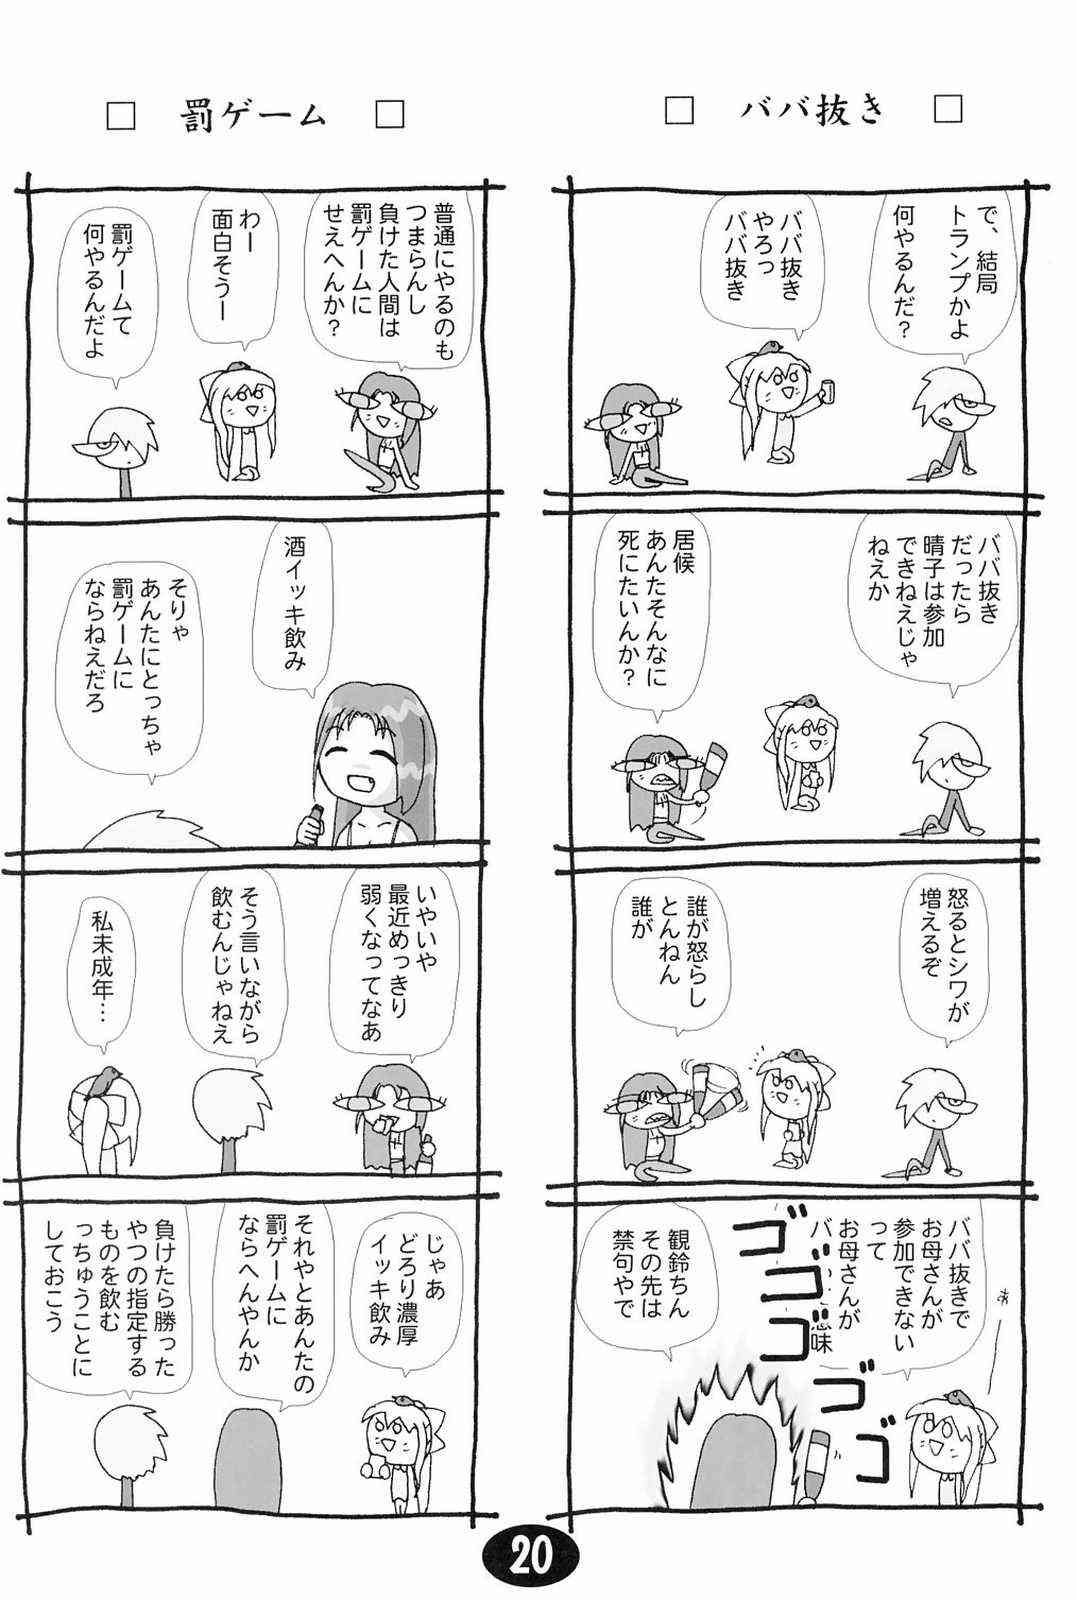 □ ババ抜き □
で、結局
トランプかよ
何やるんだ?
ババ抜き
やろっ
ババ抜き
ババ抜き
だったら
晴子は参加
できねえじゃ
ねえか
居候
あんたそんなに
死にたいんか?
怒るとシワが
増えるぞ
誰が怒らし
とんねん
誰が
ババ抜きで
お母さんが
参加できない
って
お母さんが
バ
意味
あ
ゴゴゴゴゴ
観鈴ちん
その先は
禁句やで
□ 罰ゲーム □
普通にやるのも
つまらんし
負けた人間は
罰ゲームに
せえへんか?
わー
面白そうー
罰ゲームて
何やるんだよ
酒イッキ飲み
そりゃ
あんたにとっちゃ
罰ゲームに
ならねえだろ
いやいや
最近めっきり
弱くなってなあ
そう言いながら
飲むんじゃねえ
私未成年…
じゃあ
どろり濃厚
イッキ飲み
それやとあんたの
罰ゲームに
ならへんやんか
負けたら勝った
やつの指定する
ものを飲む
っちゅうことに
しておこう
20